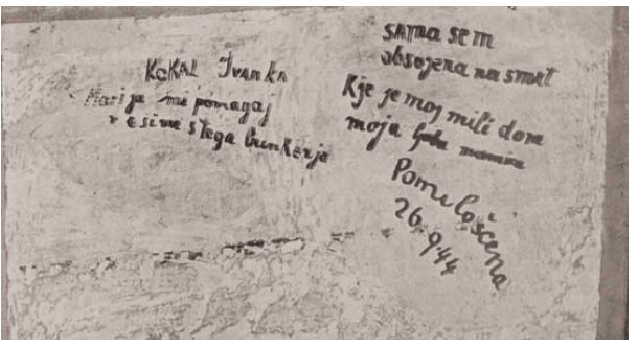 KOKAL Ivanka
Marija mi pomagaj
resi me s tega bunkerja
sama sem
obsojena na smrt
Kje je moj mili dom
moja
Pomeloščena
26.9.44